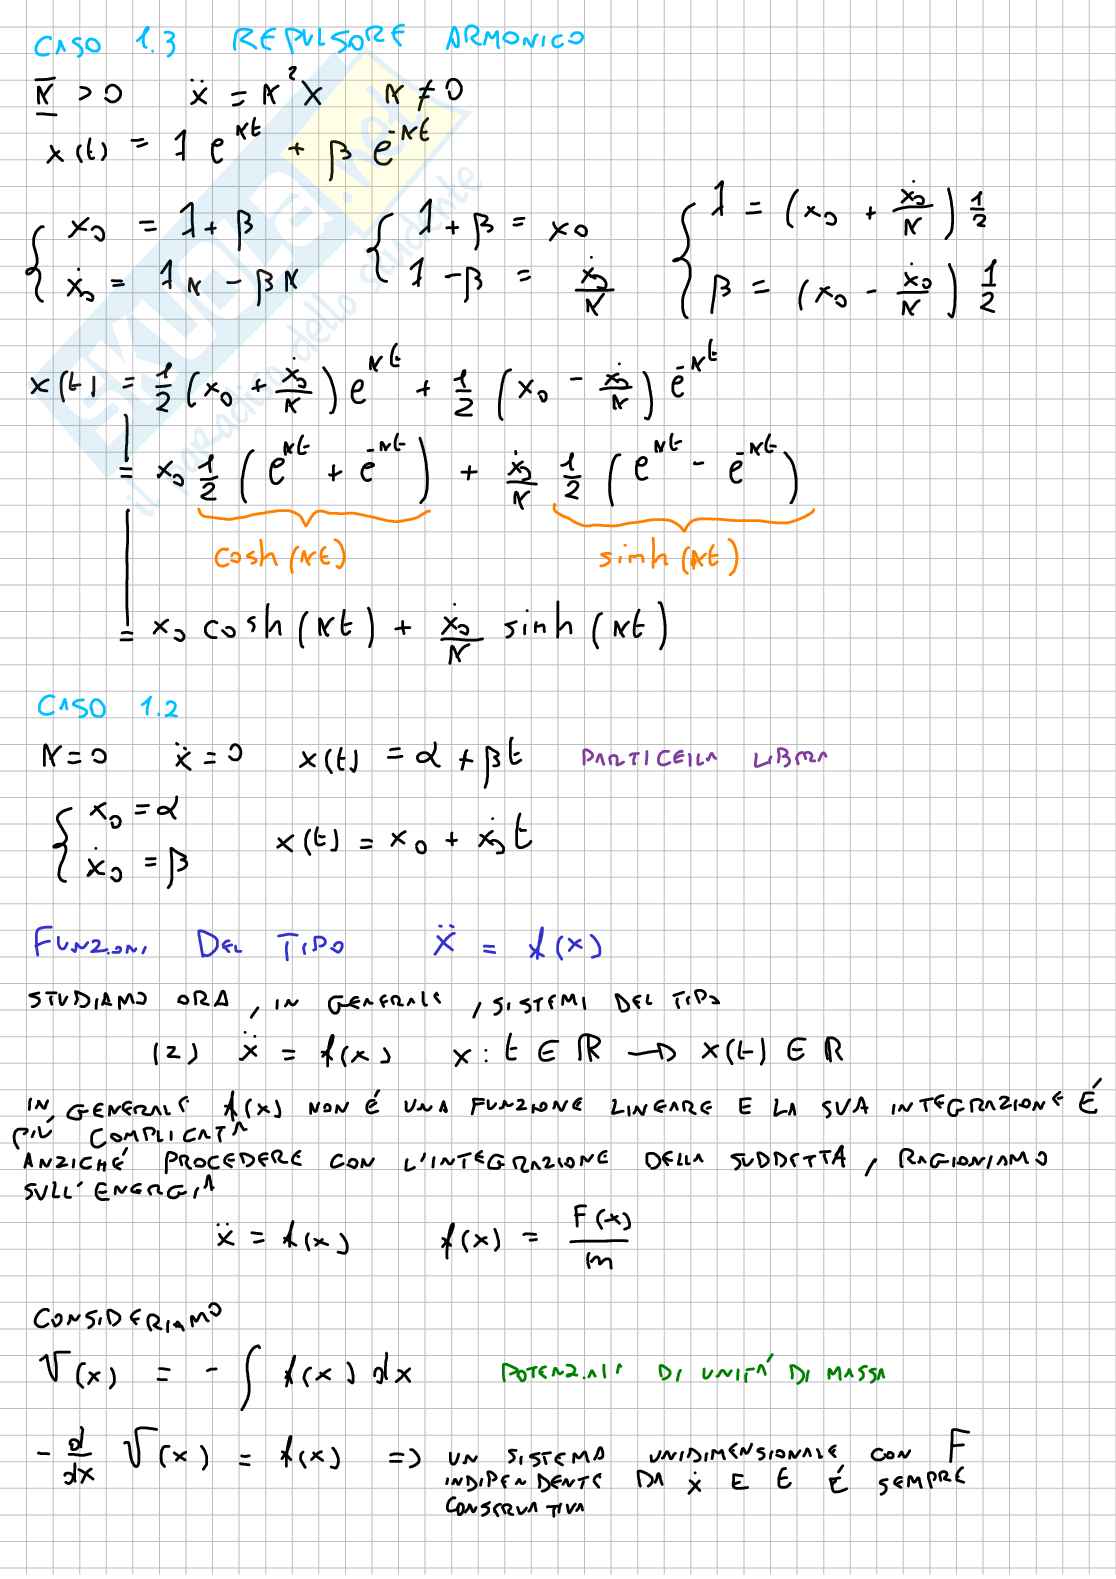 CASO 1.3 REPULSORE ARMONICO
K̲̅ > 0 ẍ = K²X K ≠ 0
x(t) = λ e^{Kt} + β e^{-Kt}
{ x₀ = λ + β { λ + β = x₀ { λ = (x₀ + ẋ₀/K) 1/2
{ ẋ₀ = λK - βK { λ - β = ẋ₀/K { β = (x₀ - ẋ₀/K) 1/2
x(t) = 1/2 (x₀ + ẋ₀/K) e^{Kt} + 1/2 (x₀ - ẋ₀/K) e^{-Kt}
= x₀ 1/2 (e^{Kt} + e^{-Kt}) + ẋ₀/K 1/2 (e^{Kt} - e^{-Kt})
cosh(Kt) sinh(Kt)
= x₀ cosh(Kt) + ẋ₀/K sinh(Kt)
CASO 1.2
K=0 ẍ=0 x(t) = α + βt PARTICELLA LIBERA
{ x₀ = α
{ ẋ₀ = β x(t) = x₀ + ẋ₀t
FUNZIONI DEL TIPO ẍ = f(x)
STUDIAMO ORA, IN GENERALE, SISTEMI DEL TIPO
(2) ẍ = f(x) x : t ∈ ℝ → x(t) ∈ ℝ
IN GENERALE f(x) NON É UNA FUNZIONE LINEARE E LA SUA INTEGRAZIONE É
PIÚ COMPLICATA
ANZICHÉ PROCEDERE CON L'INTEGRAZIONE DELLA SUDDETTA, RAGIONIAMO
SULL'ENERGIA
ẍ = f(x) f(x) = F(x)/m
CONSIDERIAMO
V(x) = - ∫ f(x) dx POTENZIALE DI UNITÁ DI MASSA
- d/dx V(x) = f(x) => UN SISTEMA UNIDIMENSIONALE CON F
INDIPENDENTE DA ẋ E t É SEMPRE
CONSERVATIVA
SKUOLA.net
il paradiso dello studente